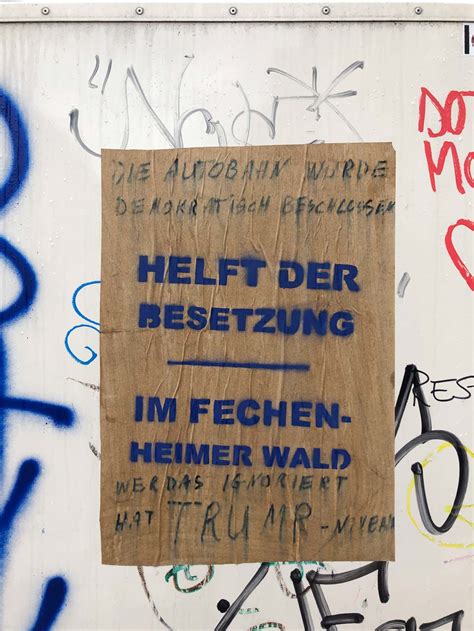 DIE AUTOBAHN WURDE
DEMOKRATISCH BESCHLOSSEN
HELFT DER
BESETZUNG
IM FECHEN-
HEIMER WALD
WER DAS IGNORIERT
HAT TRUMP-NIVEAU